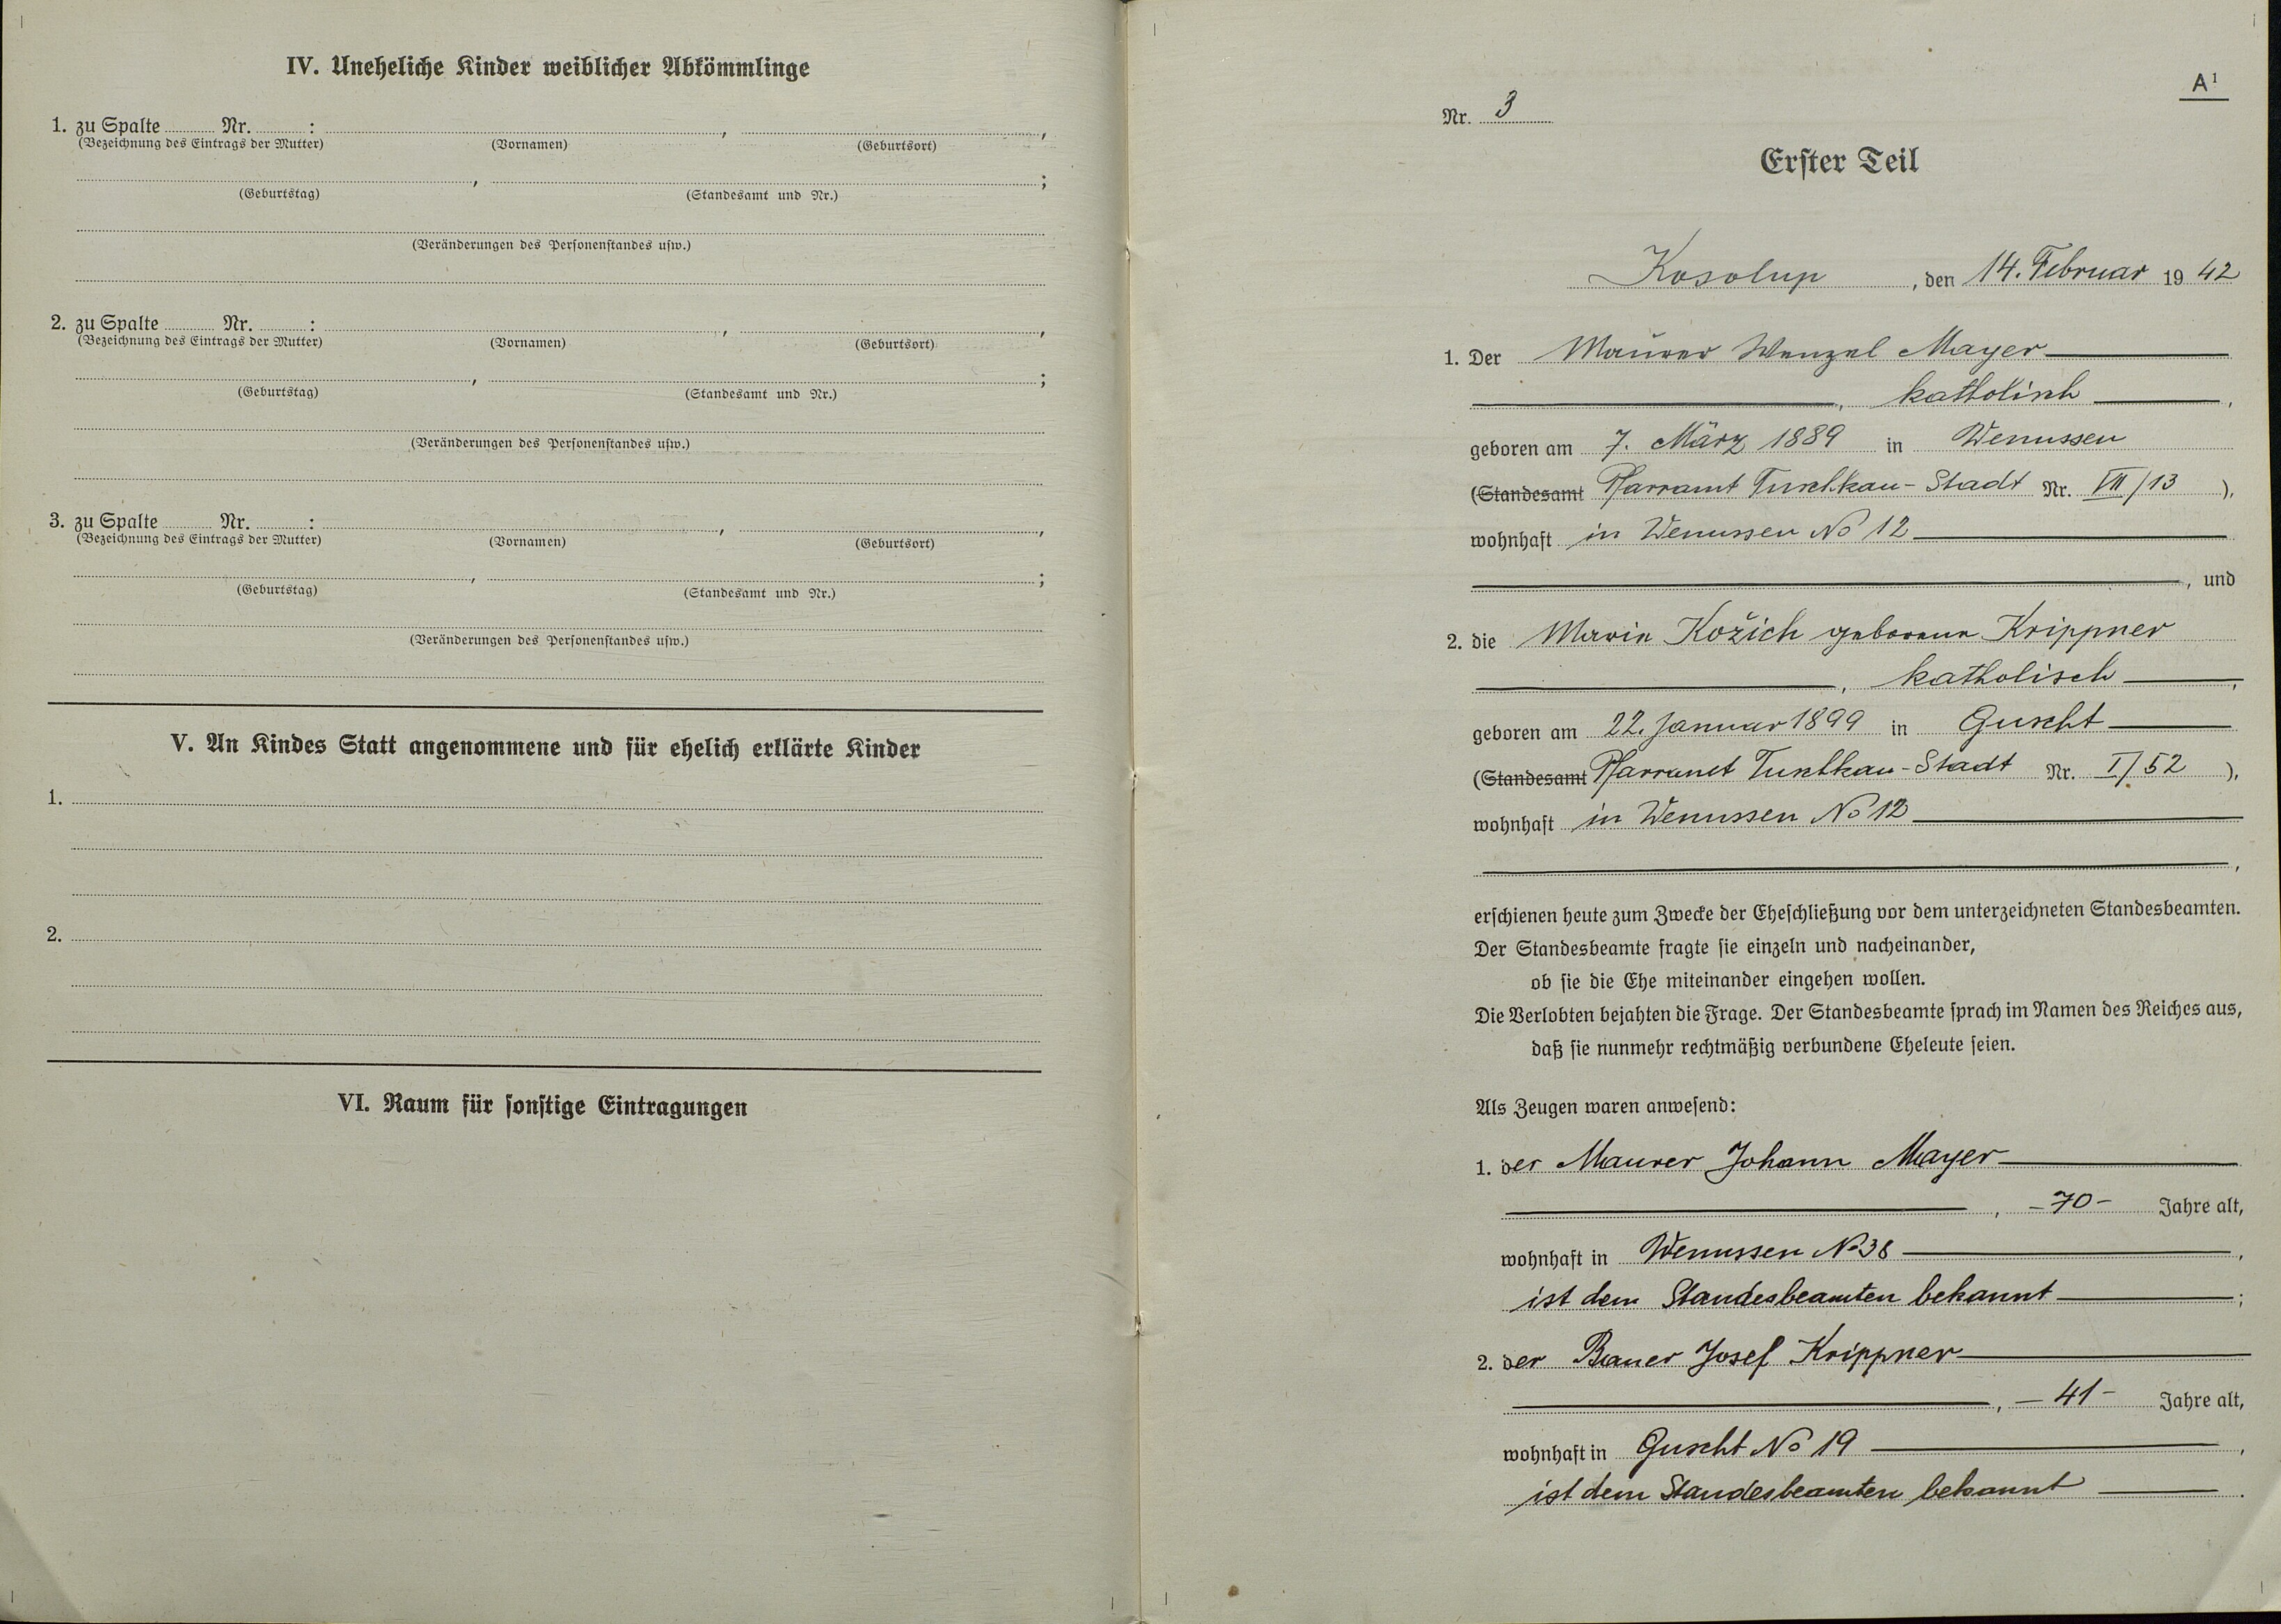 IV. Uneheliche Kinder weiblicher Abkömmlinge
1. zu Spalte ........ Nr. ........ : ........, ........,
(Bezeichnung des Eintrags der Mutter) (Vornamen) (Geburtsort)
........, ........;
(Geburtstag) (Standesamt und Nr.)
(Veränderungen des Personenstandes usw.)
2. zu Spalte ........ Nr. ........ : ........, ........,
(Bezeichnung des Eintrags der Mutter) (Vornamen) (Geburtsort)
........, ........;
(Geburtstag) (Standesamt und Nr.)
(Veränderungen des Personenstandes usw.)
3. zu Spalte ........ Nr. ........ : ........, ........,
(Bezeichnung des Eintrags der Mutter) (Vornamen) (Geburtsort)
........, ........;
(Geburtstag) (Standesamt und Nr.)
(Veränderungen des Personenstandes usw.)
V. An Kindes Statt angenommene und für ehelich erklärte Kinder
1.
2.
VI. Raum für sonstige Eintragungen
A¹
Nr. 3
Erster Teil
Kosolup, den 14. Februar 1942
1. Der Maurer Wenzel Mayer
, katholisch,
geboren am 7. März 1889 in Wenussen
(Standesamt Pfarramt Tuschkau-Stadt Nr. VII/13),
wohnhaft in Wenussen No 12
, und
2. die Marie Kožich geborene Krippner
, katholisch,
geboren am 22. Januar 1899 in Guscht
(Standesamt Pfarramt Tuschkau-Stadt Nr. I/52),
wohnhaft in Wenussen No 12
,
erschienen heute zum Zwecke der Eheschließung vor dem unterzeichneten Standesbeamten.
Der Standesbeamte fragte sie einzeln und nacheinander,
ob sie die Ehe miteinander eingehen wollen.
Die Verlobten bejahten die Frage. Der Standesbeamte sprach im Namen des Reiches aus,
daß sie nunmehr rechtmäßig verbundene Eheleute seien.
Als Zeugen waren anwesend:
1. der Maurer Johann Mayer
, -70- Jahre alt,
wohnhaft in Wenussen No 38,
ist dem Standesbeamten bekannt;
2. der Bauer Josef Krippner
, -41- Jahre alt,
wohnhaft in Guscht No 19,
ist dem Standesbeamten bekannt.